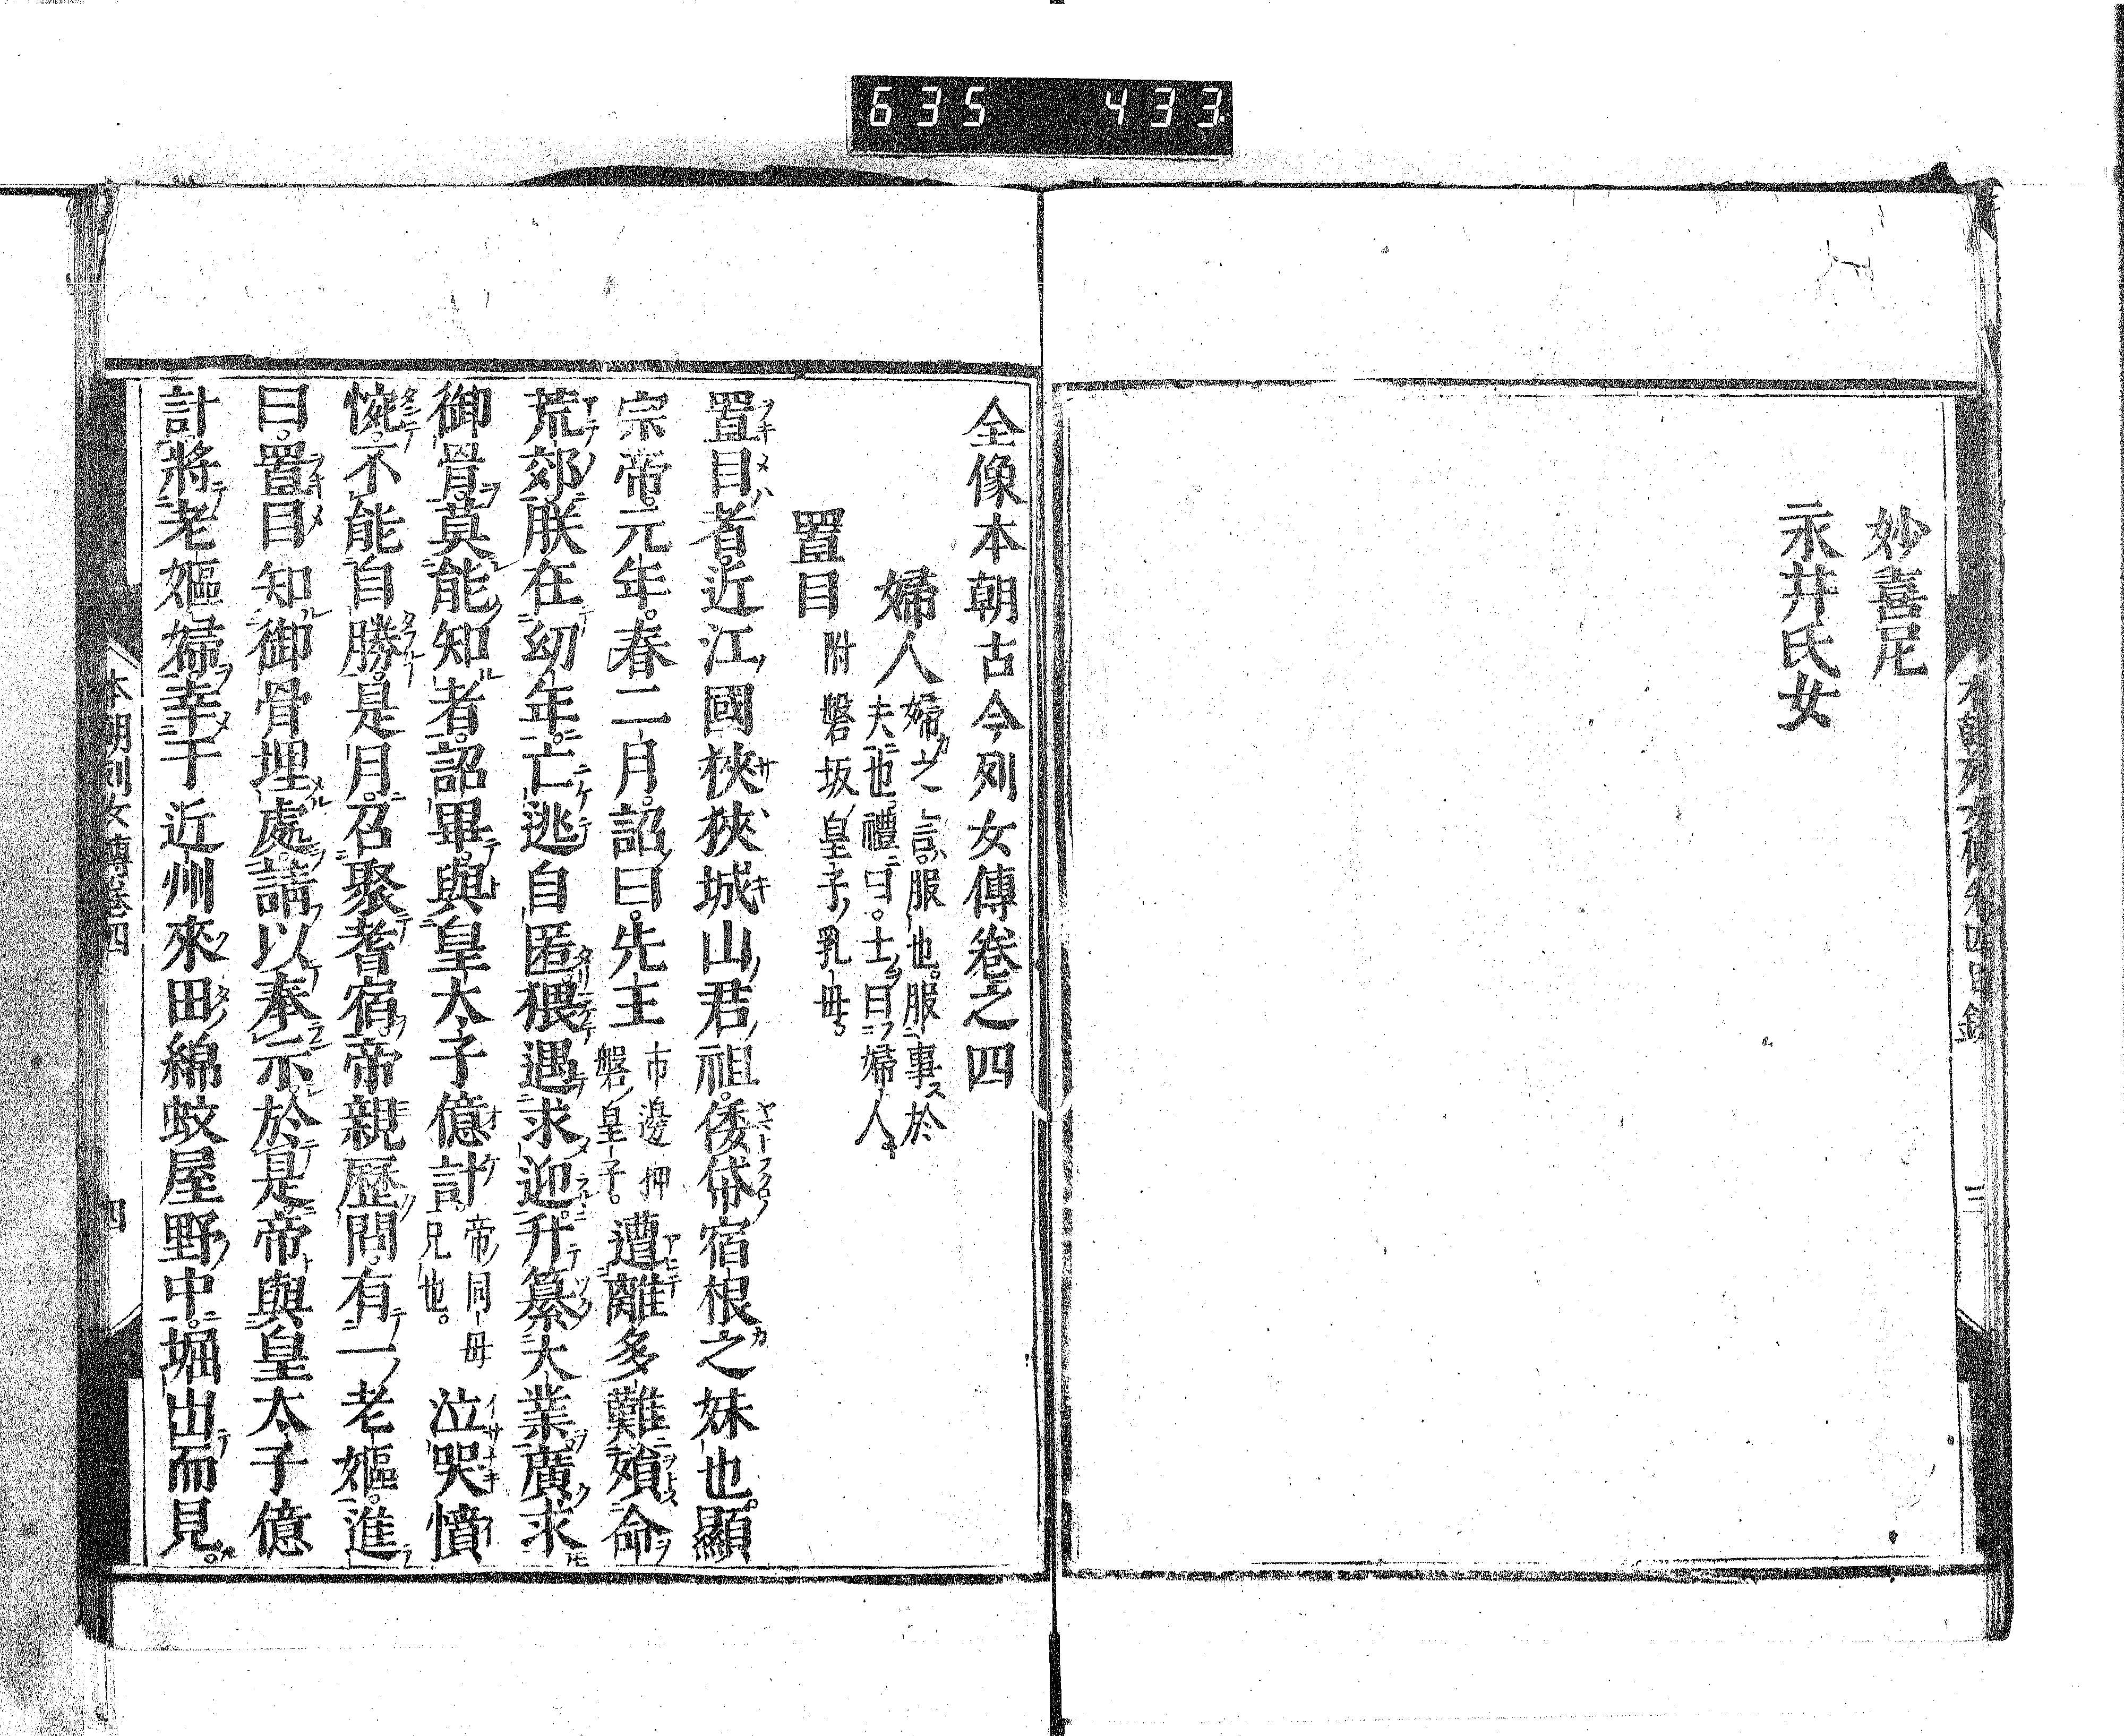 635 433
妙喜尼
永井氏女
本朝列女傳卷四目錄 三
全像本朝古今列女傳卷之四
婦人 婦之言服也服事於夫也禮曰士曰婦人
置目 附 磐坂皇子乳母
置目者近江國狹狹城山君祖倭帒宿根之妹也顯
宗帝元年春二月詔曰先主 市邊押磐皇子 遭離多難殞命
荒郊朕在幼年亡逃自匿猥遇求迎升纂大業廣求
御骨莫能知者詔畢與皇太子億計 帝同母兄也 泣哭憤
惋不能自勝是月召聚耆宿帝親歷問有一老嫗進
曰置目知御骨埋處請以奉示於是帝與皇太子億
計將老嫗婦幸于近州來田綿蚊屋野中堀出而見
本朝列女傳卷四 四